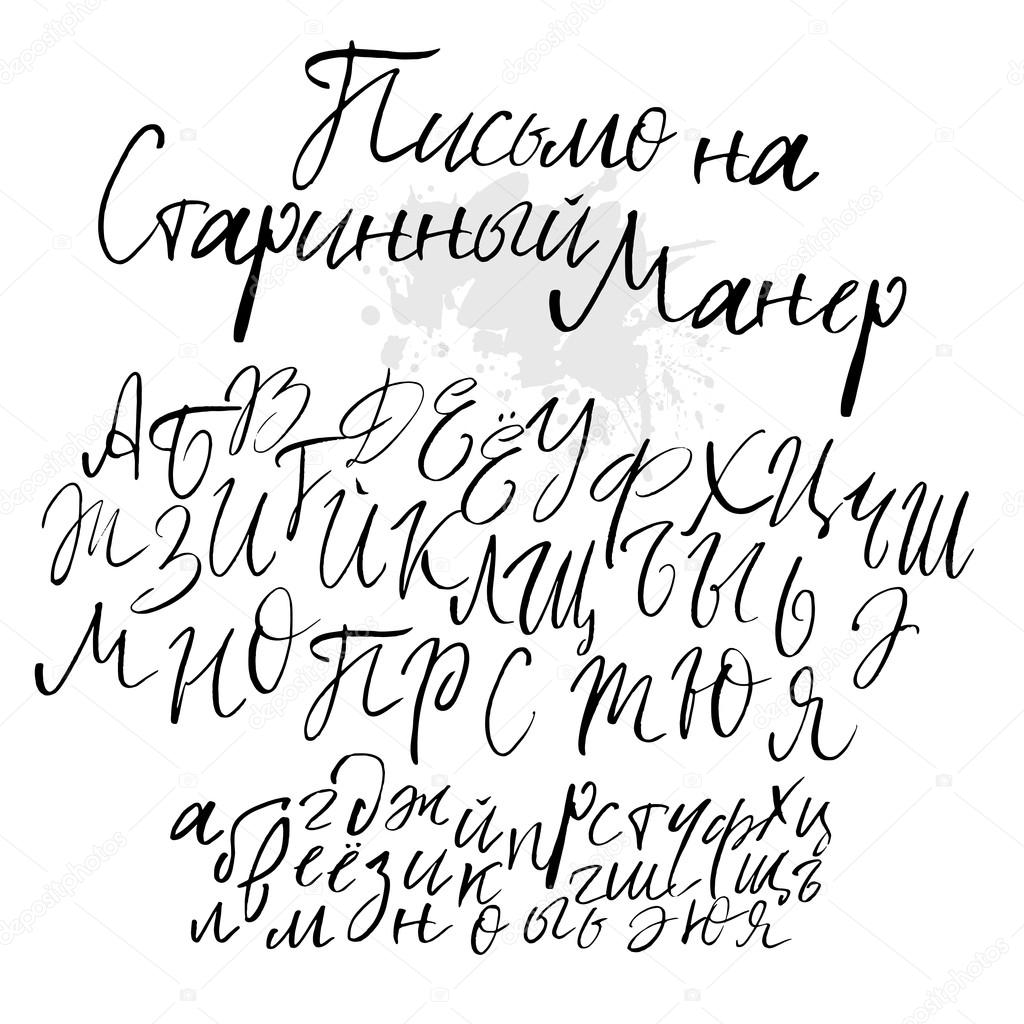 Письмо на
Старинный Манер
А Б В Д Е Ё У Ф Х Ц Ч Ш
Ж З И Г Й К Л Щ Ъ Ы Ь Э
М Н О П Р С Т Ю Я
а б в г д ж й п р с т у ф х ц
е ё з и к ч ш щ ъ
л м н о ы ь э ю я
depositphotos